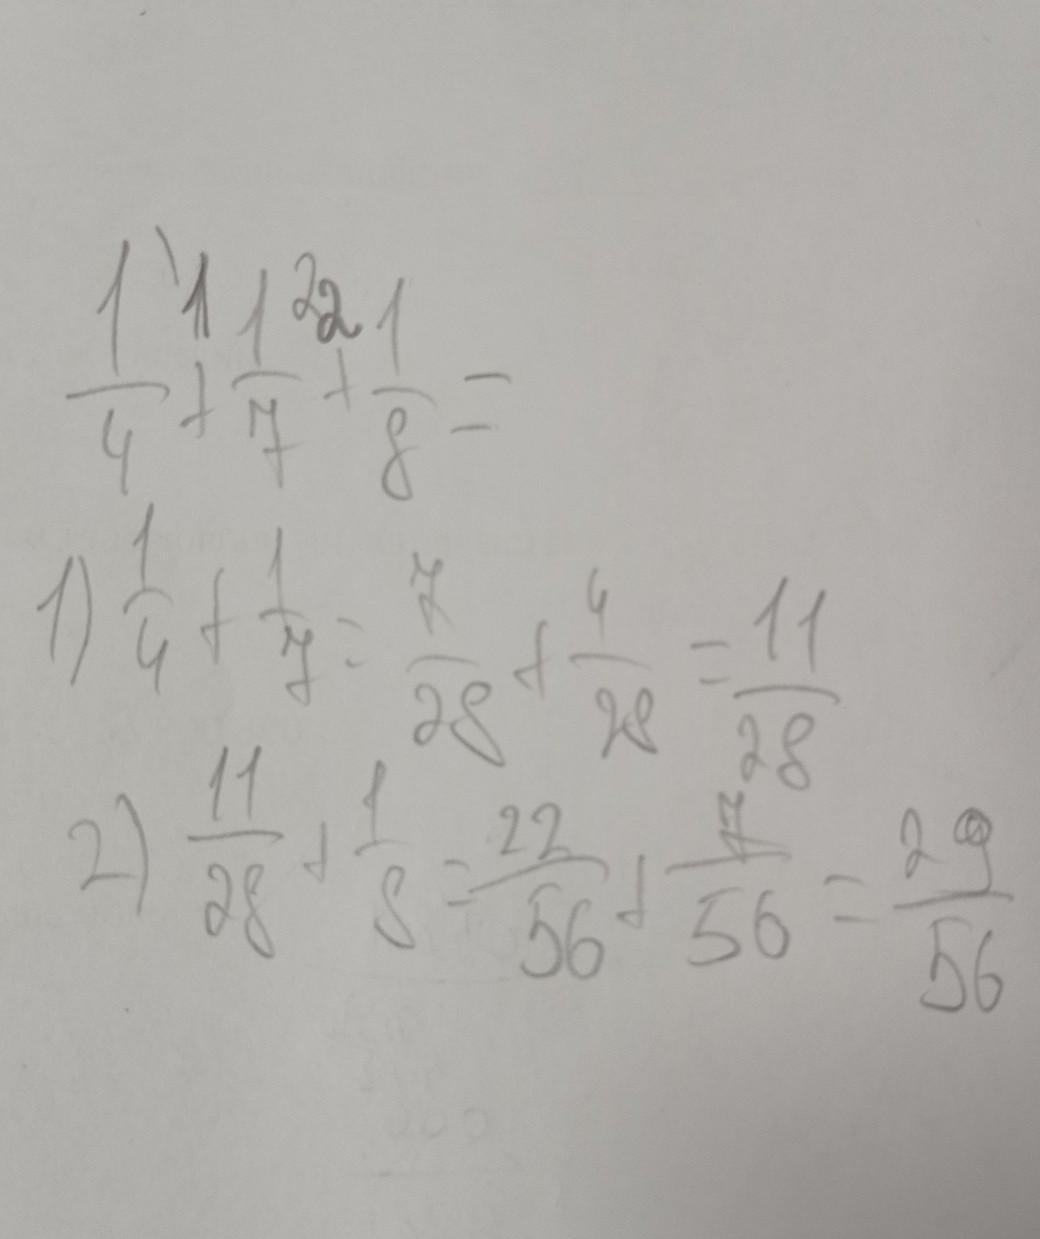 1 2
1/4 + 1/7 + 1/8 =
1) 1/4 + 1/7 = 7/28 + 4/28 = 11/28
2) 11/28 + 1/8 = 22/56 + 7/56 = 29/56